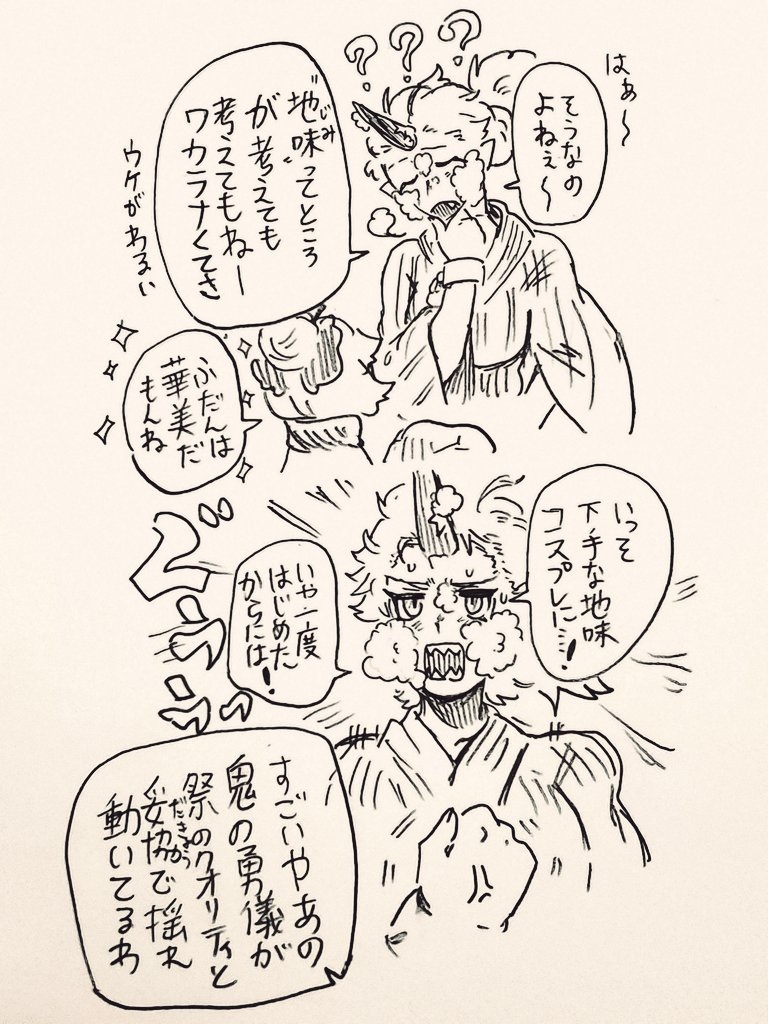 はぁ〜
そうなの
よねぇ〜
???
"地味ってところ
じみ
が考えても
考えてもねー
ワカラナくてさ
ウケがわるい
ふだんは
華美だ
もんね
いっそ
下手な地味
コスプレに…!
いや一度
はじめた
からには!
ぐぅぅっ
すごいやあの
鬼の勇儀が
祭のクオリティと
妥協で揺れ
だきょう
動いてるわ